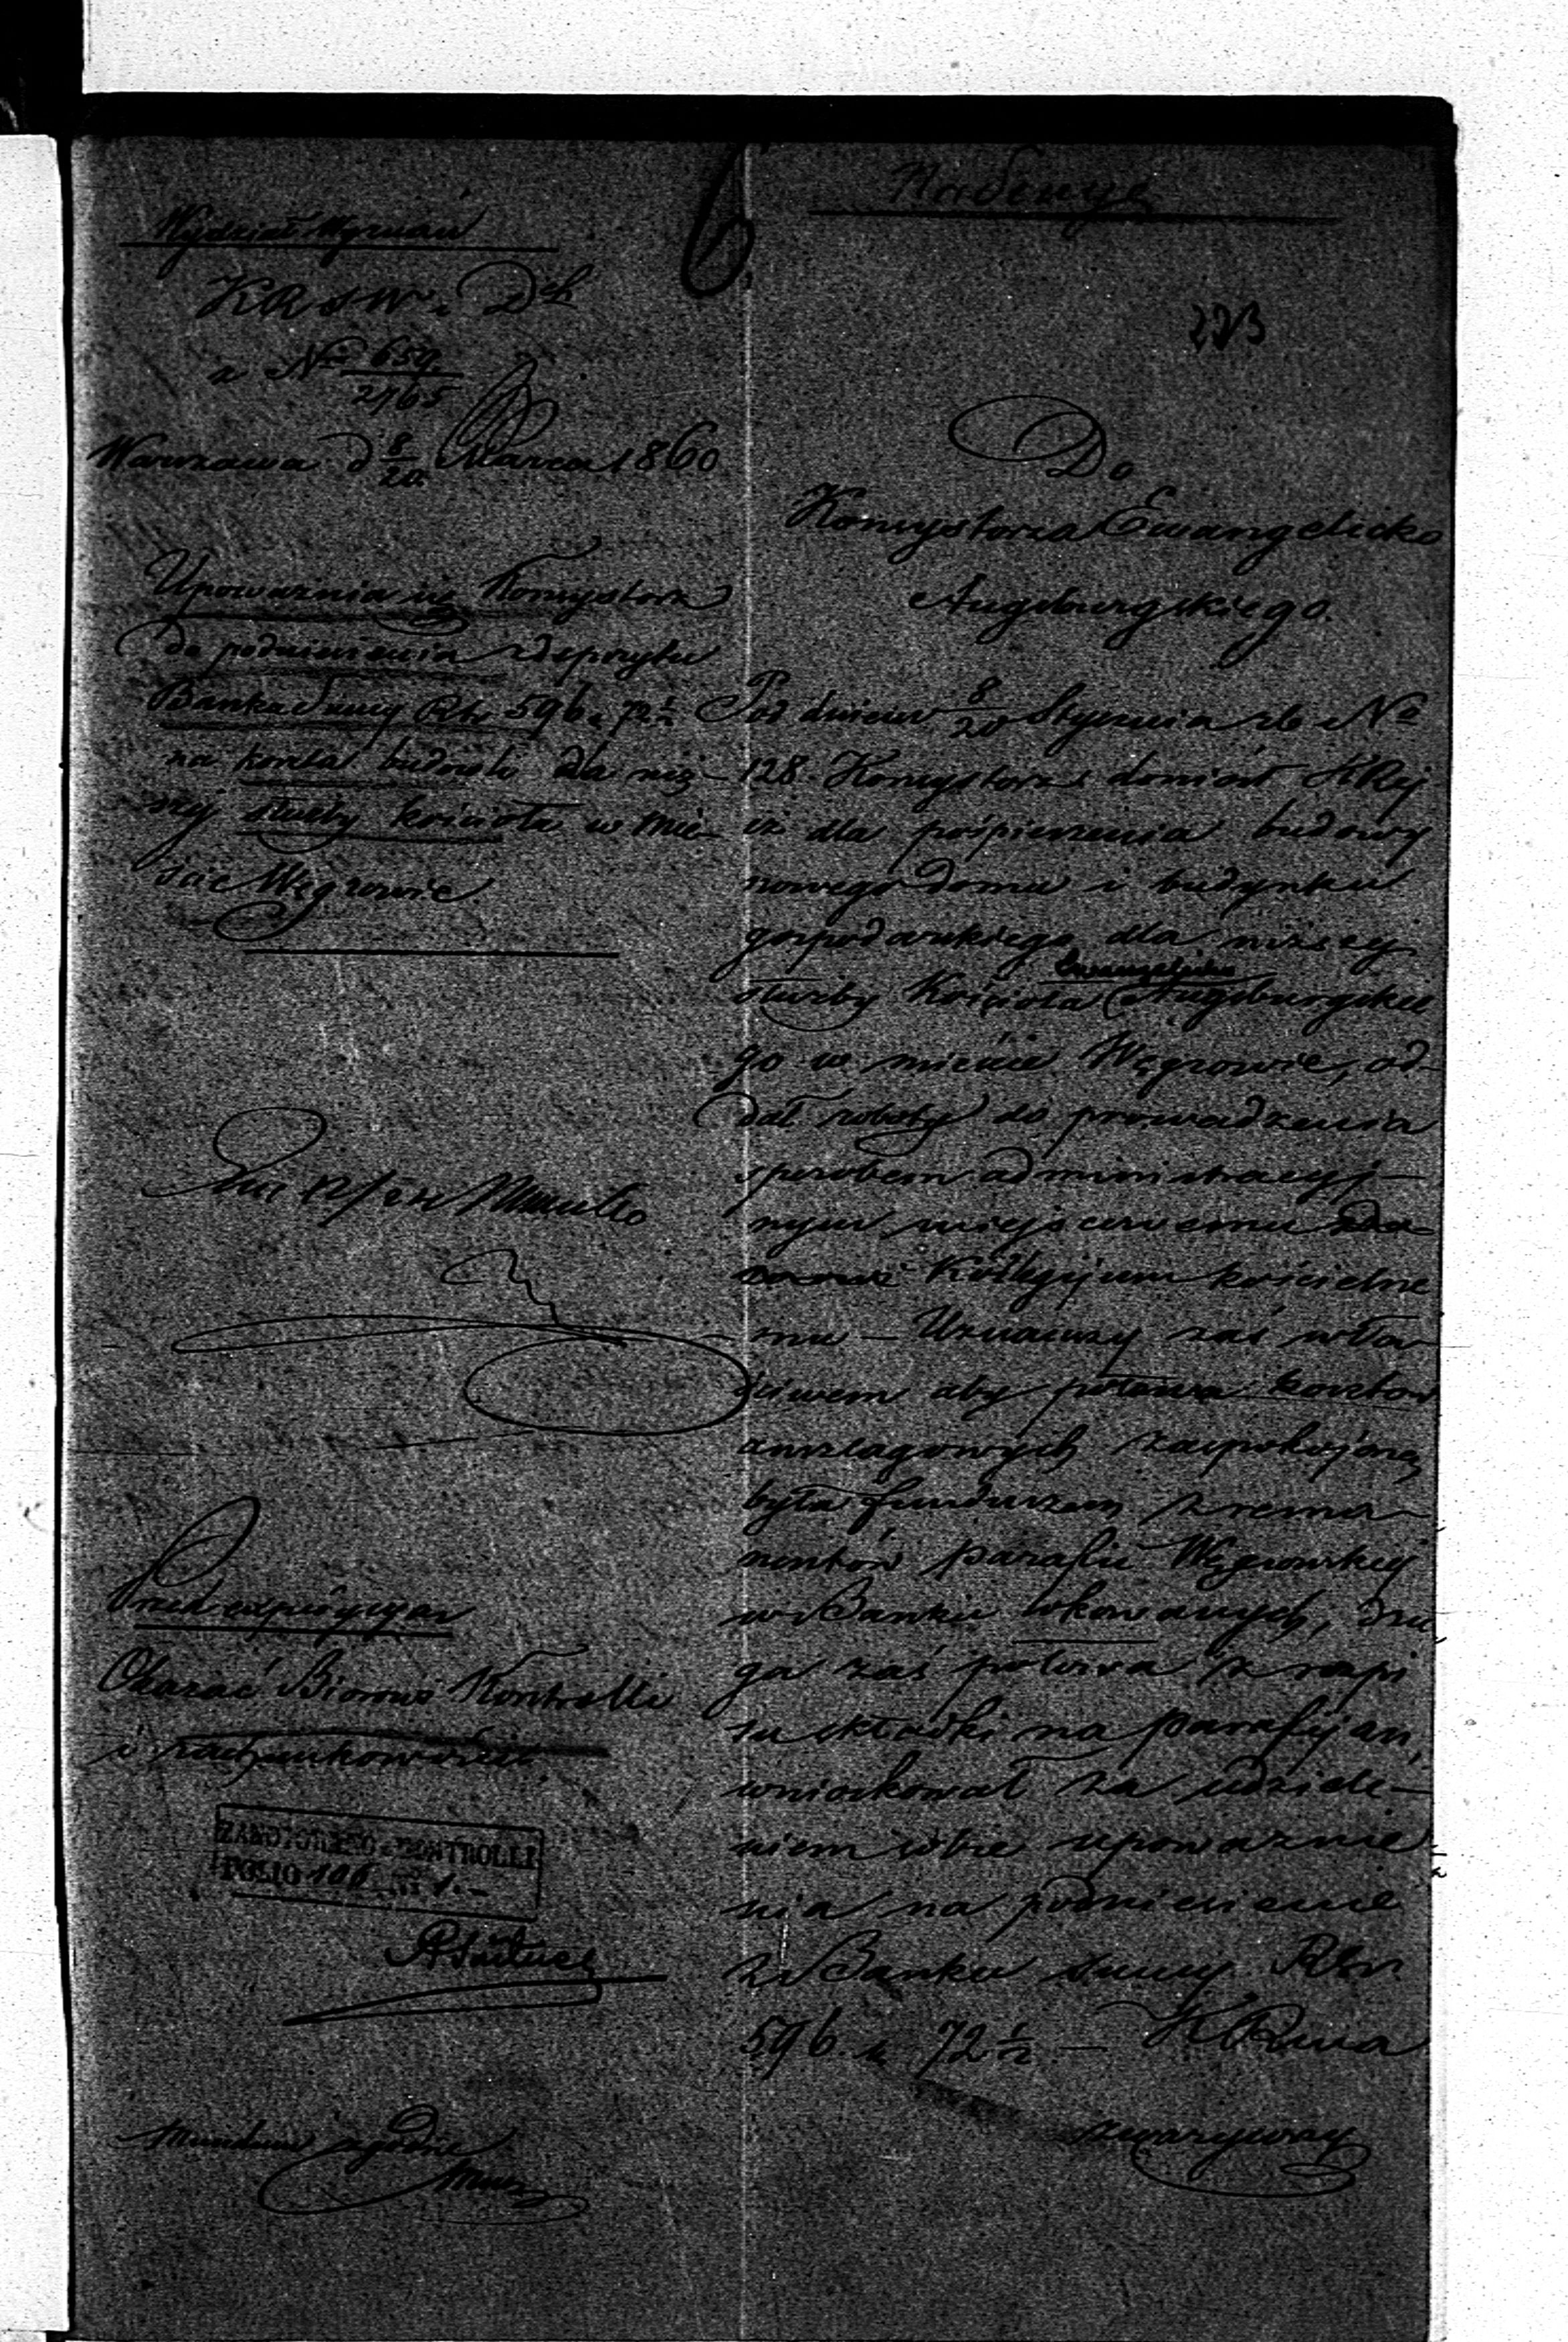 Wydział Wyznań
KRSW i D
z № 659/2765
Warszawa d 8/20 Marca 1860
Upoważnia się Konsystorz
do podniesienia z depozytu
Banku Summy Rsr 596 k 72½
na koszta budowli dla niż-
szej służby kościoła w mie-
ście Węgrowie
Przed expedycyą
Okazać Biorowi Kontrolli
i rachunkowości
ZANOTOWANO w KONTROLLI
FOLIO 106 1.-
Mundum zgodne
223
Do
Konsystorza Ewangelicko
Augsburgskiego.
Pod dniem 8/20 Stycznia rb №
128 Konsystorz doniósł KRej
iż dla pośpieszenia budowy
nowego domu i budynku
gospodarskiego dla niższej
służby Kościoła Ewangelicko Augsburgskie
go w mieście Węgrowie, od-
dał roboty do prowadzenia
sposobem administracyj-
nym miejscowemu
Kollegijum kościelne
mu – Uznawszy zaś wła
ściwem aby połowa kosztów
anszlagowych zaspokojoną
była funduszem z rema-
nentów parafii Węgrowskiej
w Banku lokowanych, dru
ga zaś połowa z rozpi
su składki na parafijan,
wnioskował za udziele-
niem sobie upoważnie-
nia na podniesienie
z Banku summy Rsr.
596 k 72½ – KRwa
zważywszy